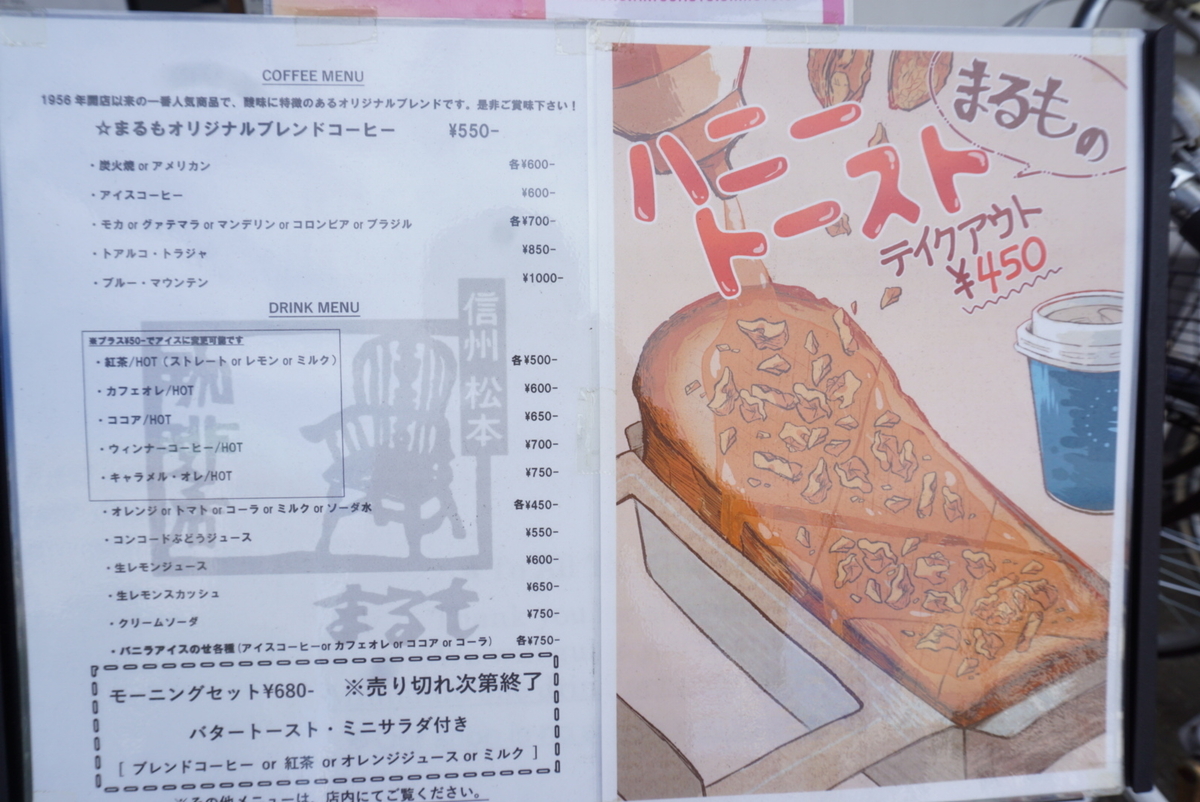 COFFEE MENU
1956年開店以来の一番人気商品で、酸味に特徴のあるオリジナルブレンドです。是非ご賞味下さい！
☆まるもオリジナルブレンドコーヒー ¥550-
・炭火焼 or アメリカン 各¥600-
・アイスコーヒー ¥600-
・モカ or グァテマラ or マンデリン or コロンビア or ブラジル 各¥700-
・トアルコ・トラジャ ¥850-
・ブルー・マウンテン ¥1000-
DRINK MENU
※プラス¥50-でアイスに変更可能です
・紅茶/HOT（ストレート or レモン or ミルク） 各¥500-
・カフェオレ/HOT ¥600-
・ココア/HOT ¥650-
・ウィンナーコーヒー/HOT ¥700-
・キャラメル・オレ/HOT ¥750-
・オレンジ or トマト or コーラ or ミルク or ソーダ水 各¥450-
・コンコードぶどうジュース ¥550-
・生レモンジュース ¥600-
・生レモンスカッシュ ¥650-
・クリームソーダ ¥750-
・バニラアイスのせ各種（アイスコーヒーor カフェオレ or ココア or コーラ） 各¥750-
モーニングセット¥680- ※売り切れ次第終了
バタートースト・ミニサラダ付き
[ ブレンドコーヒー or 紅茶 or オレンジジュース or ミルク ]
※その他メニューは、店内にてご覧ください。
信州 松本
珈琲店
まるも
まるもの
ハニー
トースト
テイクアウト
¥450